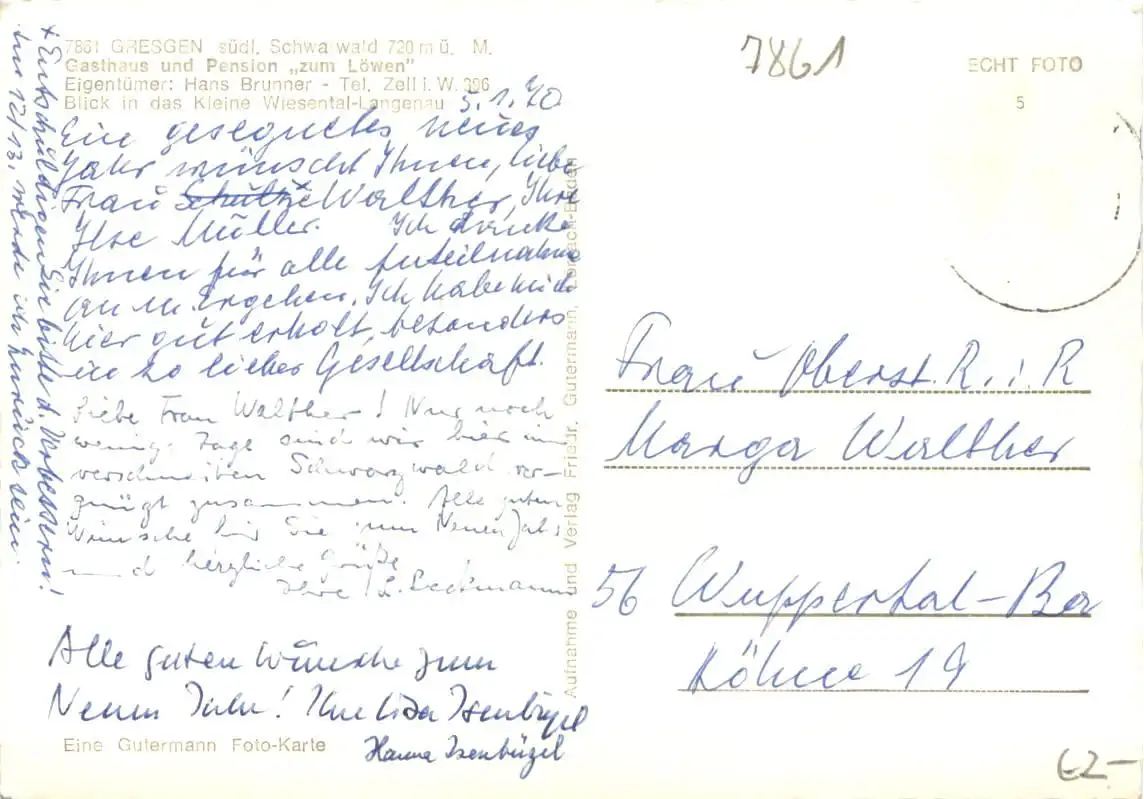 7861 GRESGEN südl. Schwarzwald 720 m ü. M.
Gasthaus und Pension „zum Löwen"
Eigentümer: Hans Brunner - Tel. Zell i. W. 396
Blick in das Kleine Wiesental-Langenau
5.1.70
Ein gesegnetes neues
Jahr wünscht Ihnen, liebe
Frau Schultze Walther, Ihre
Ilse Müller. Ich danke
Ihnen für alle Anteilnahme
an m. Ergehen. Ich habe mich
hier gut erholt, besonders
in so lieber Gesellschaft.
Liebe Frau Walther! Nur noch
wenige Tage sind wir hier im
verschneiten Schwarzwald ver-
gnügt zusammen. Alle guten
Wünsche für Sie zum Neuen Jahr
und herzliche Grüße
Ihre L. Beckmann
Alle guten Wünsche zum
Neuen Jahr! Ihre Lida Isenbügel
Hanna Isenbügel
Eine Gutermann Foto-Karte
* Entschuldigen Sie bitte d. Verbessern!
Am 12/13. werde ich zurück sein.
Aufnahme und Verlag Friedr. Gutermann,
7861
ECHT FOTO
5
Frau Oberst. R. i. R
Marga Walther
56 Wuppertal-Ba
19
€2-